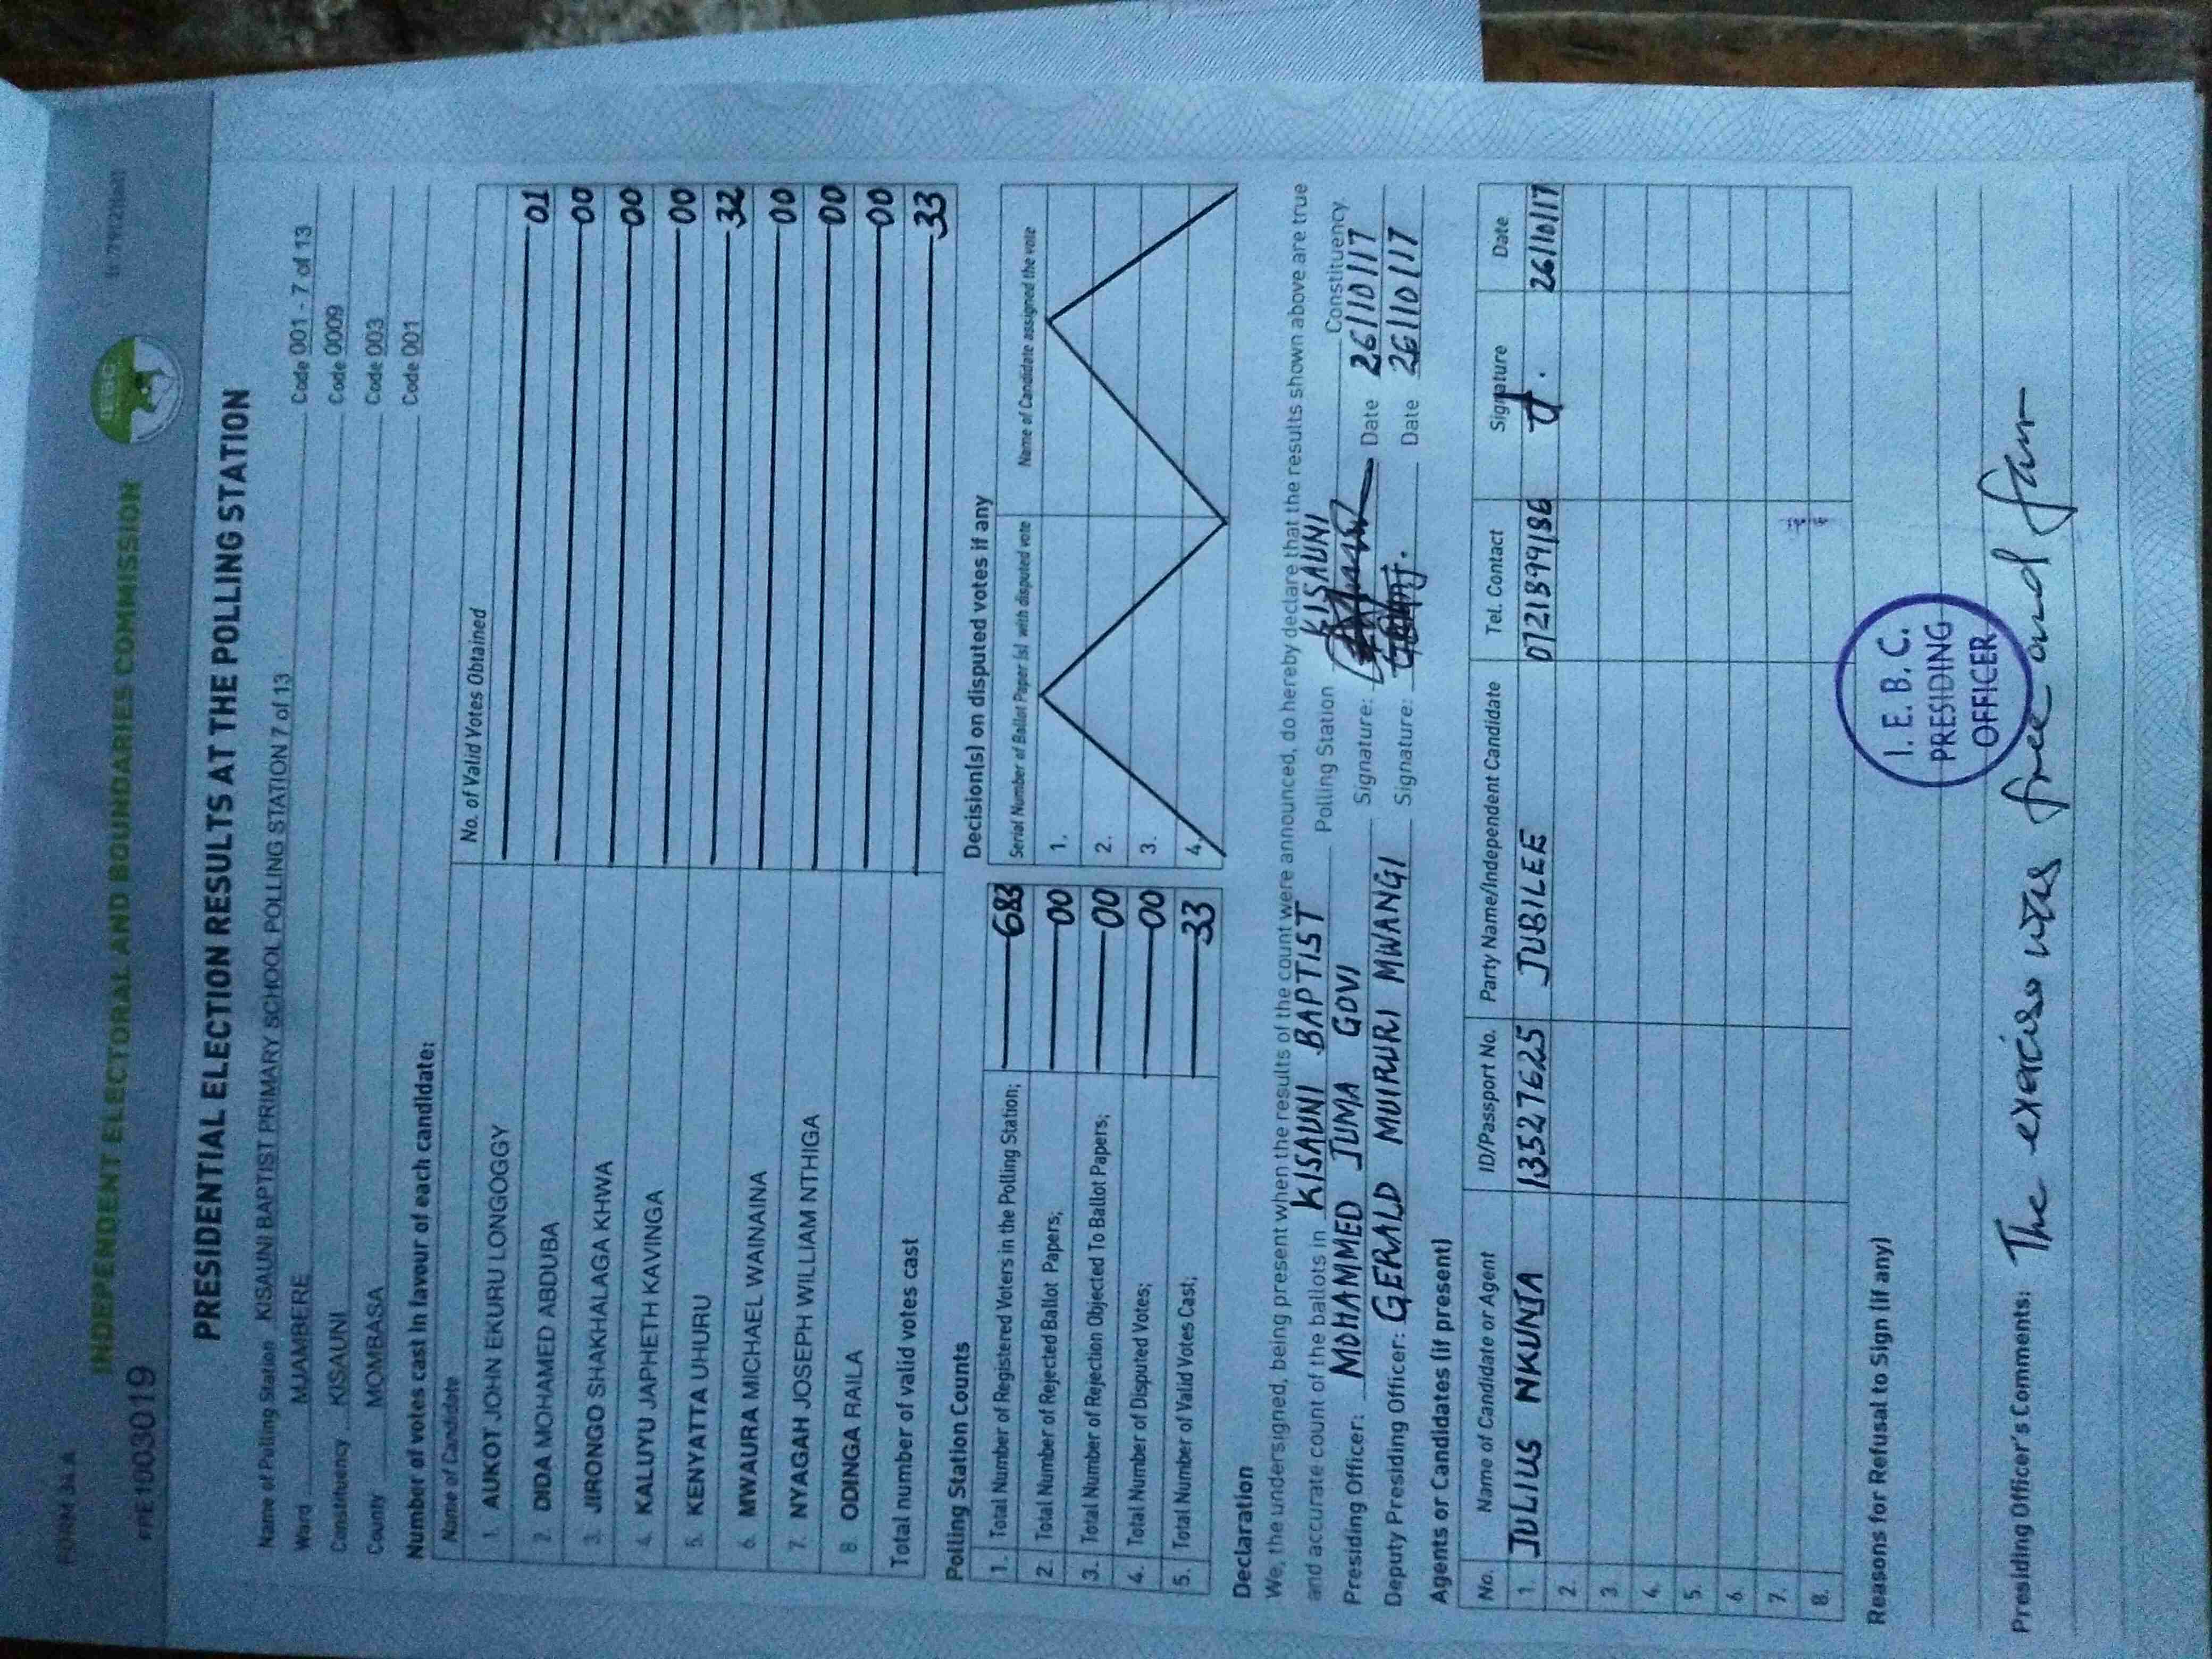 FORM 34 A
INDEPENDENT ELECTORAL AND BOUNDARIES COMMISSION
IEBC
PRESIDENTIAL ELECTION RESULTS AT THE POLLING STATION
Name of Polling Station KISAUNI BAPTIST PRIMARY SCHOOL POLLING STATION 7 of 13 Code 001 - 7 of 13
Ward MJAMBERE Code 0009
Constituency KISAUNI Code 003
County MOMBASA Code 001
Number of votes cast in favour of each candidate:
Name of Candidate No. of Valid Votes Obtained
1. AUKOT JOHN EKURU LONGOGGY 01
2. DIDA MOHAMED ABDUBA 00
3. JIRONGO SHAKHALAGA KHWA 00
4. KALUYU JAPHETH KAVINGA 00
5. KENYATTA UHURU 32
6. MWAURA MICHAEL WAINAINA 00
7. NYAGAH JOSEPH WILLIAM NTHIGA 00
8. ODINGA RAILA 00
Total number of valid votes cast 33
Polling Station Counts
1. Total Number of Registered Voters in the Polling Station; 683
2. Total Number of Rejected Ballot Papers; 00
3. Total Number of Rejection Objected To Ballot Papers; 00
4. Total Number of Disputed Votes; 00
5. Total Number of Valid Votes Cast; 33
Decision(s) on disputed votes if any
Serial Number of Ballot Paper (s) with disputed vote Name of Candidate assigned the vote
1.
2.
3.
4.
Declaration
We, the undersigned, being present when the results of the count were announced, do hereby declare that the results shown above are true
and accurate count of the ballots in KISAUNI BAPTIST Polling Station KISAUNI Constituency
Presiding Officer: MOHAMMED JUMA GOVI Signature: Date 26/10/17
Deputy Presiding Officer: GERALD MUIRURI MWANGI Signature: Date 26/10/17
Agents or Candidates (if present)
No. Name of Candidate or Agent ID/Passport No. Party Name/Independent Candidate Tel. Contact Signature Date
1. JULIUS NKUNJA 13527625 JUBILEE 0721399186 26/10/17
2.
3.
4.
5.
6.
7.
8.
I. E. B. C.
PRESIDING
OFFICER
Reasons for Refusal to Sign (if any)
Presiding Officer's Comments: The exercise was free and fair